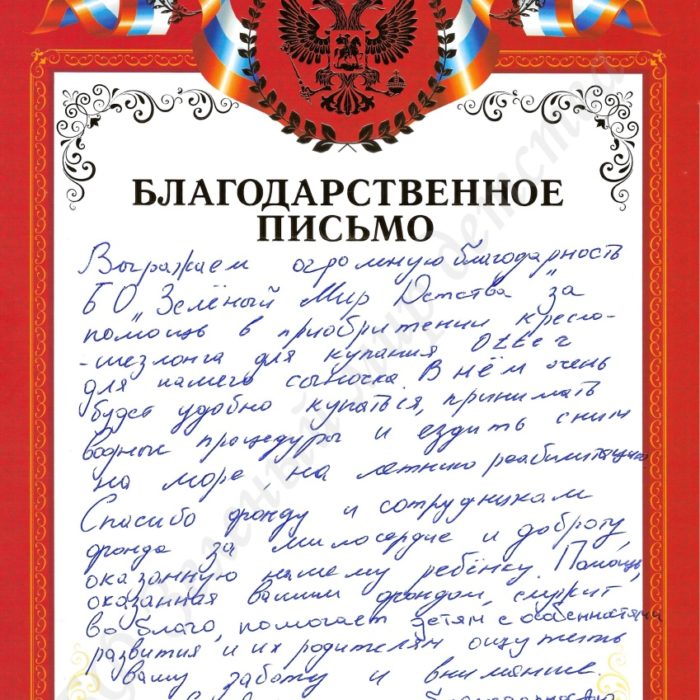 БЛАГОДАРСТВЕННОЕ
ПИСЬМО
Выражаем огромную благодарность
БО "Зелёный Мир Детства" за
помощь в приобритении кресло-
-шезлонга для купания Otter
для нашего сыночка. В нём очень
будет удобно купаться, принимать
водные процедуры и ездить с ним
на море - на летнюю реабилитацию
Спасибо фонду и сотрудникам
фонда за милосердие и доброту,
оказанную нашему ребёнку. Помощь,
оказанная вашим фондом, служит
во благо, помогает детям с особенностями
развития и их родителям ощутить
вашу заботу и внимание.